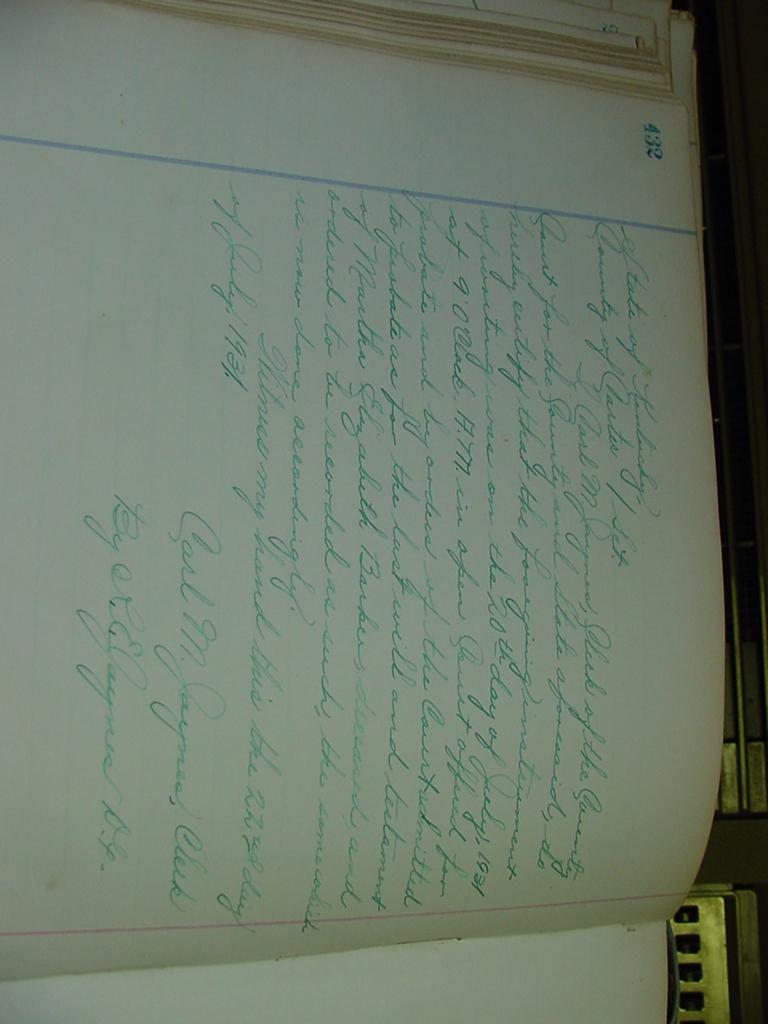 432
State of Kentucky,
County of Carter / Sct
I Carl M. Jaynes, Clerk of the County
Court for the County and State aforesaid, do
hereby certify that the foregoing instrument
of writing was on the 20th day of July, 1931
at 9 O'Clock A.M. in open Court offered for
probate and by order of the Court admitted
to probate as for the last will and testament
of Martha Elizabeth Barber, deceased, and
ordered to be recorded as such, the same which
is now done accordingly.
Witness my hand this the 22nd day
of July, 1931
Carl M. Jaynes, Clerk
By Jaynes D.C.